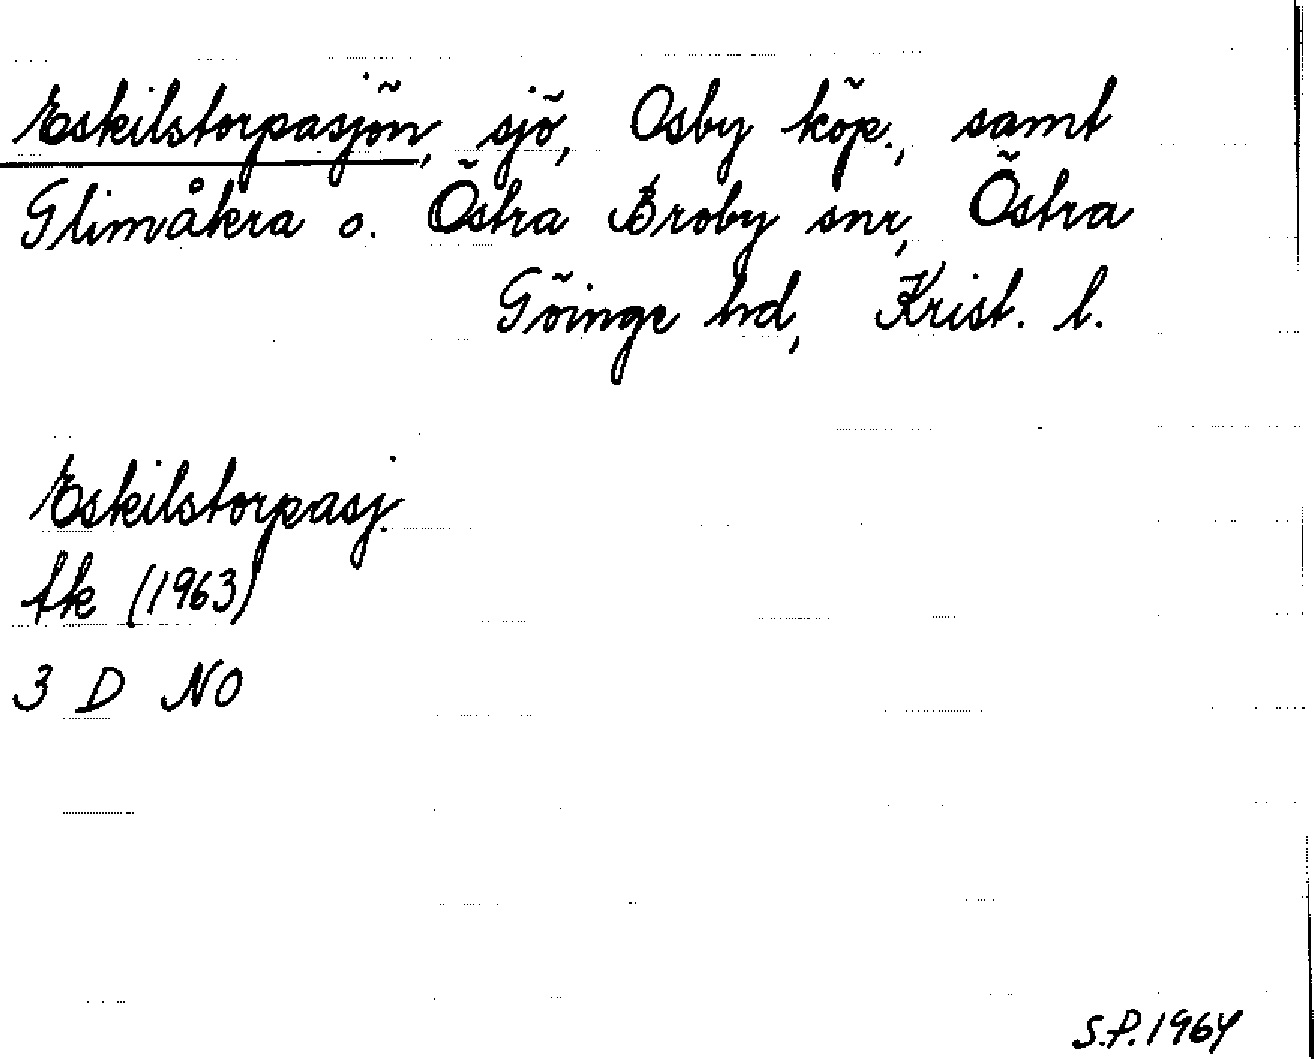 Eskilstorpasjön, sjö, Osby köp., samt
Glimåkra o. Östra Broby snr, Östra
Göinge hd, Krist. l.
Eskilstorpasj.
tk (1963)
3 D NO
S.P. 1964